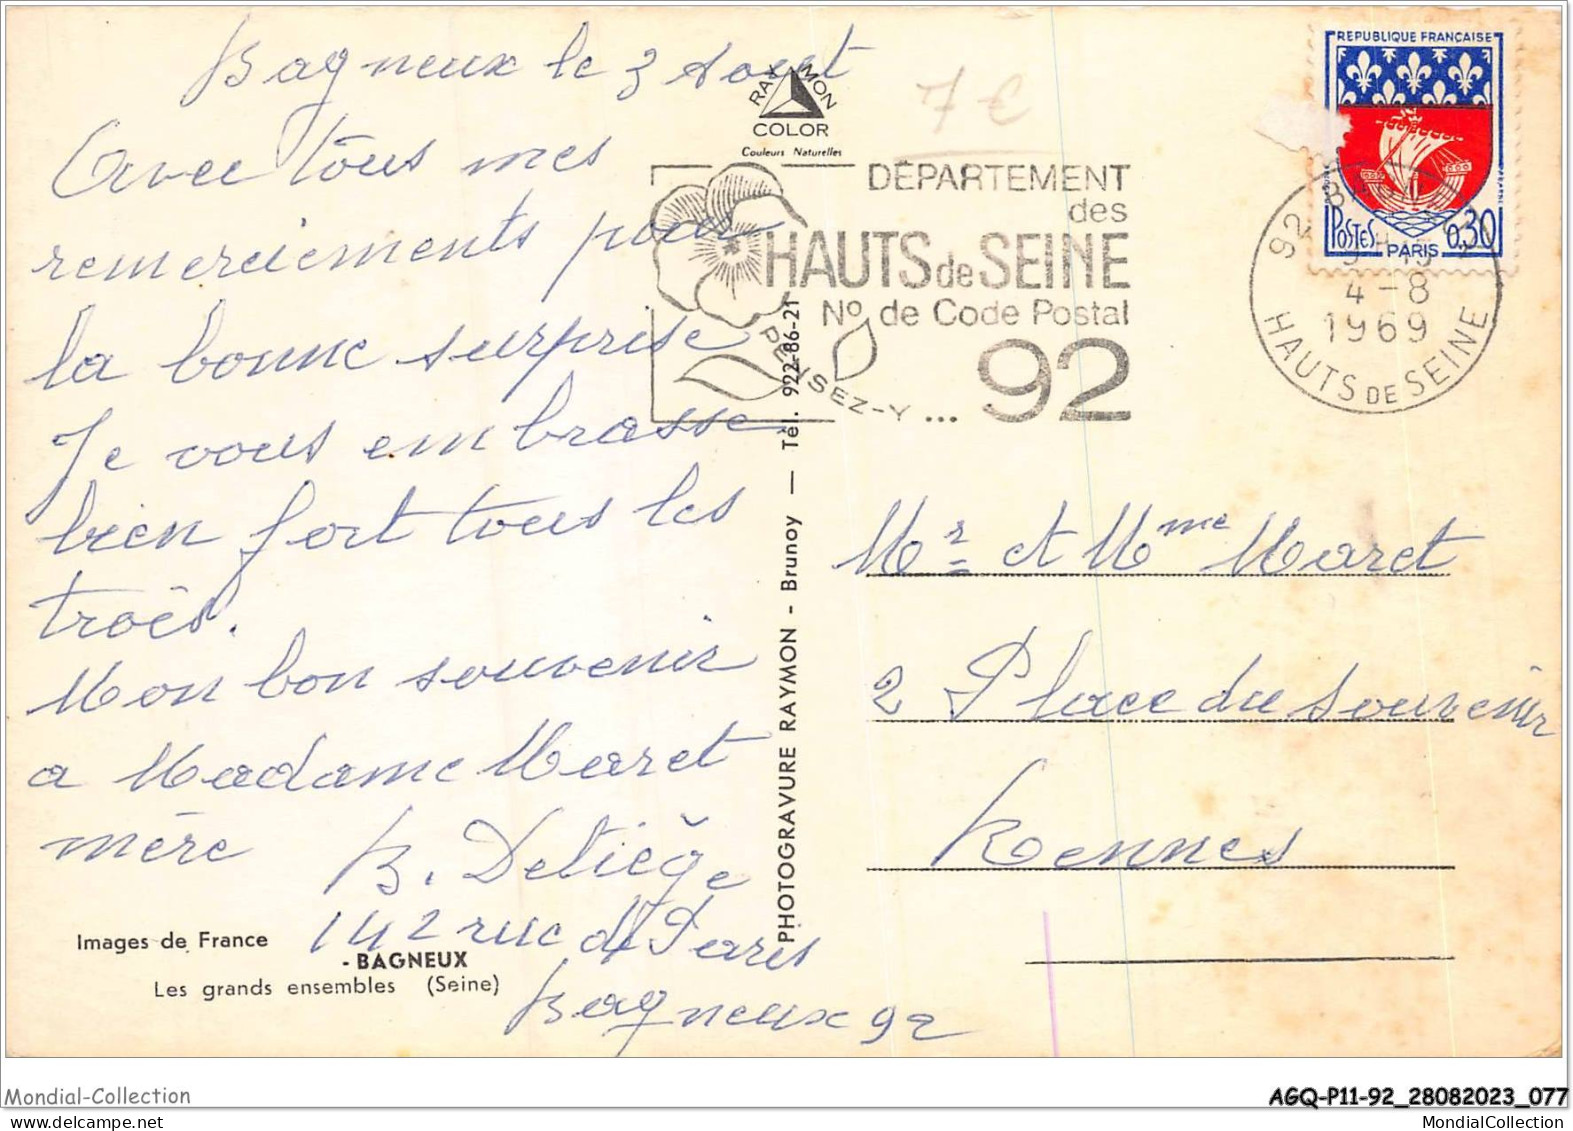 Bagneux le 3 Aout
Avec tous mes
remerciements pour
la bonne surprise
Je vous embrasse
bien fort tous les
trois.
Mon bon souvenir
a Madame Maret
mère
B. Deliège
142 rue de Paris
Bagneux 92
Images de France
- BAGNEUX
Les grands ensembles (Seine)
RAYMON
COLOR
Couleurs Naturelles
7 €
DÉPARTEMENT
des
HAUTS de SEINE
No de Code Postal
PENSEZ-Y ... 92
PHOTOGRAVURE RAYMON - Brunoy — Tél. 922-86-21
REPUBLIQUE FRANÇAISE
POSTES PARIS 0,30
92
4-8
1969
HAUTS DE SEINE
Mr et Mme Maret
2 Place du Souvenir
Rennes
Mondial-Collection
AGQ-P11-92_28082023_077
MondialCollection